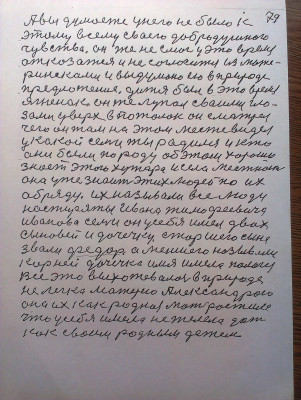 79
А вы думаете у него не было к
этому всему своего добродушного
чувства, он же не смог у это время
отказатся и не согласится из мате-
ринсками и выдумоно ею в природе
предложения, дитя был в это время
ягненак, он же лупал своими гла-
зами уверх в потолок он сматрел
чего он там на этом месте видел
у какой семи ты радился и кто
они были породу об этом хорошо
знает этого хутара и села местнасть
она уже знаит этих людей по их
обряду. их называли все люди
Ивана тимофеевича
иванова семи он у себя имел двах
сыновей и дочечку старшего сына
звали федор а меншего называли
корней дочечка имя имела
Все это выхотевалось в природе
не легко матушо Александрою
она их как родная мат растила
что у себя имела нежелела дат
как своим родным детем